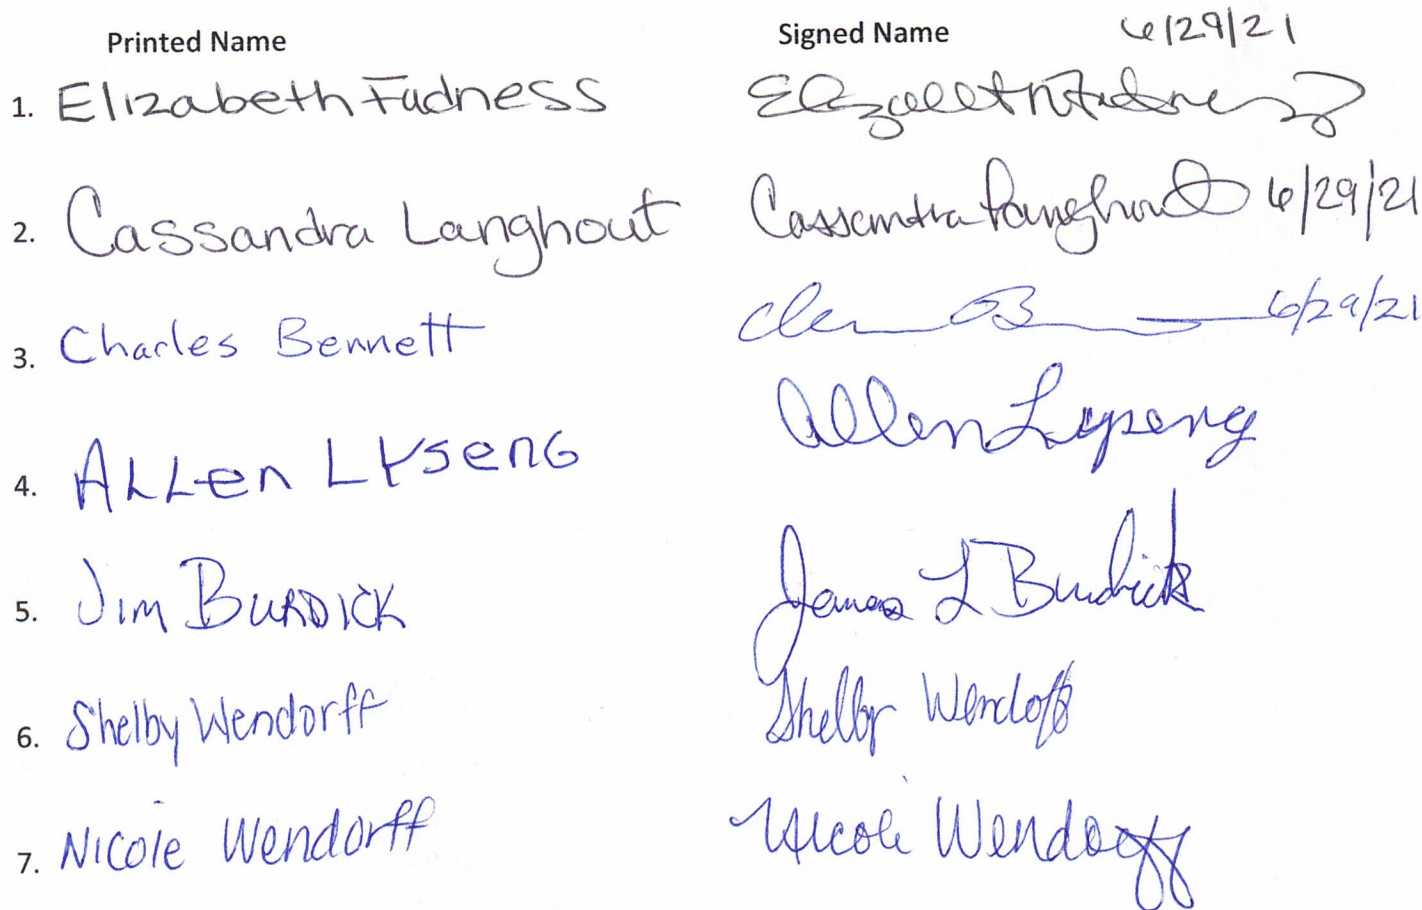 Printed Name Signed Name 6/29/21
1. Elizabeth Fadness Elizabeth Fadness
2. Cassandra Langhout Cassandra Langhout 6/29/21
3. Charles Bennett 6/29/21
4. ALLen LYsenG Allen Lyseng
5. Jim BURDICK James L Burdick
6. Shelby Wendorff Shelby Wendorff
7. Nicole Wendorff Nicole Wendorff